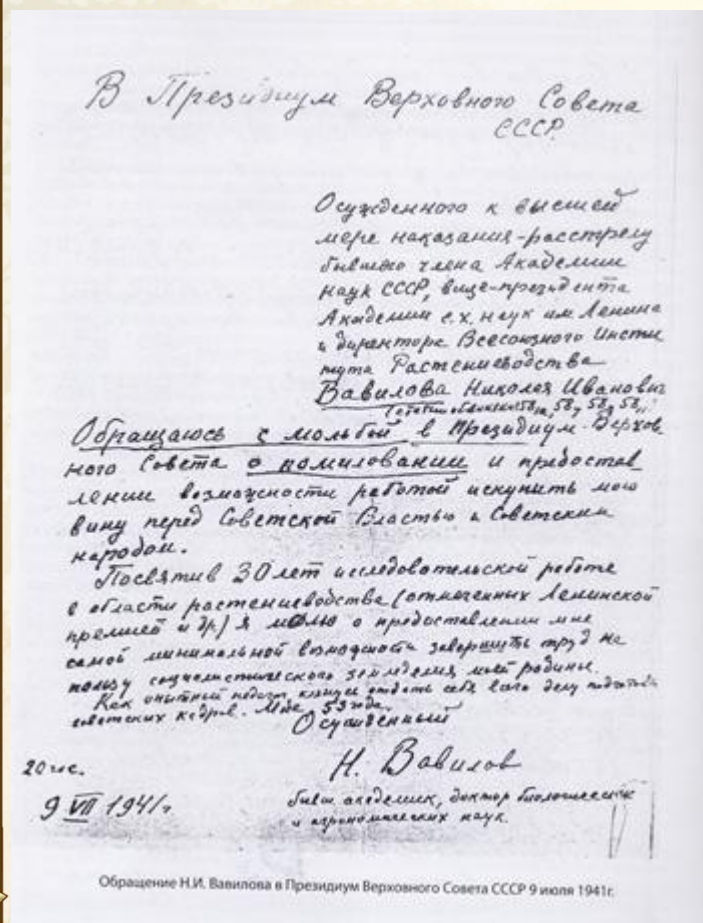 В Президиум Верховного Совета
СССР.
Осужденного к высшей
мере наказания-расстрелу
бывшего члена Академии
наук СССР, вице-президента
Академии с.х. наук им Ленина
и директора Всесоюзного Инсти
тута Растениеводства
Вавилова Николая Ивановича
58 58 58
Обращаюсь с мольбой в Президиум Верхов
ного Совета о помиловании и предостав
лении возможности работой искупить мою
вину перед Советской Властью и Советским
народом.
Посвятив 30 лет исследовательской работе
в области растениеводства (отмеченных Ленинской
премией и др) я молю о предоставлении мне
самой минимальной возможности завершить труд на
пользу социалистического земледелия моей родины.
Как опытный педагог клянусь отдать себя всего делу подготовки
советских кадров. Мне 53 года.
Осужденный
20 час.
Н. Вавилов
9 VII 1941г
бывш. академик, доктор биологических
и агрономических наук.
Обращение Н.И. Вавилова в Президиум Верховного Совета СССР 9 июля 1941г.